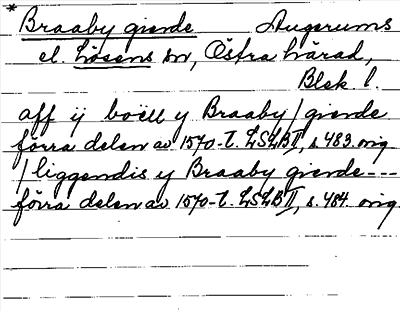 * Braaby giende Augerums
el. Lösens sn, Östra härad,
Blek. l.
aff ij boëll y Braaby / giende
förra delen av 1570-t. LSLBII, s. 483. orig
/ liggendis y Braaby giende---
förra delen av 1570-t. LSLBII, s. 484. orig.